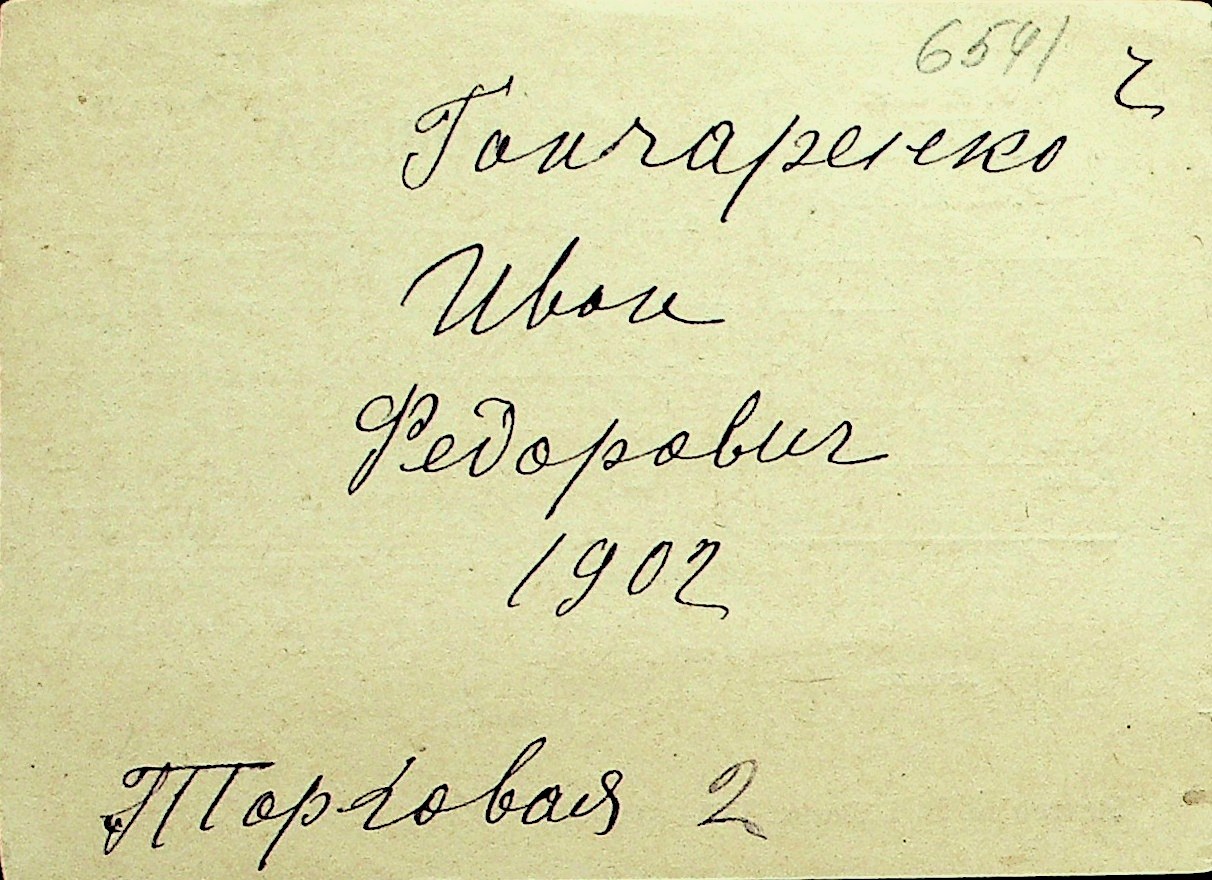 6541
2
Гончаренко
Иван
Федорович
1902
Торговая 2